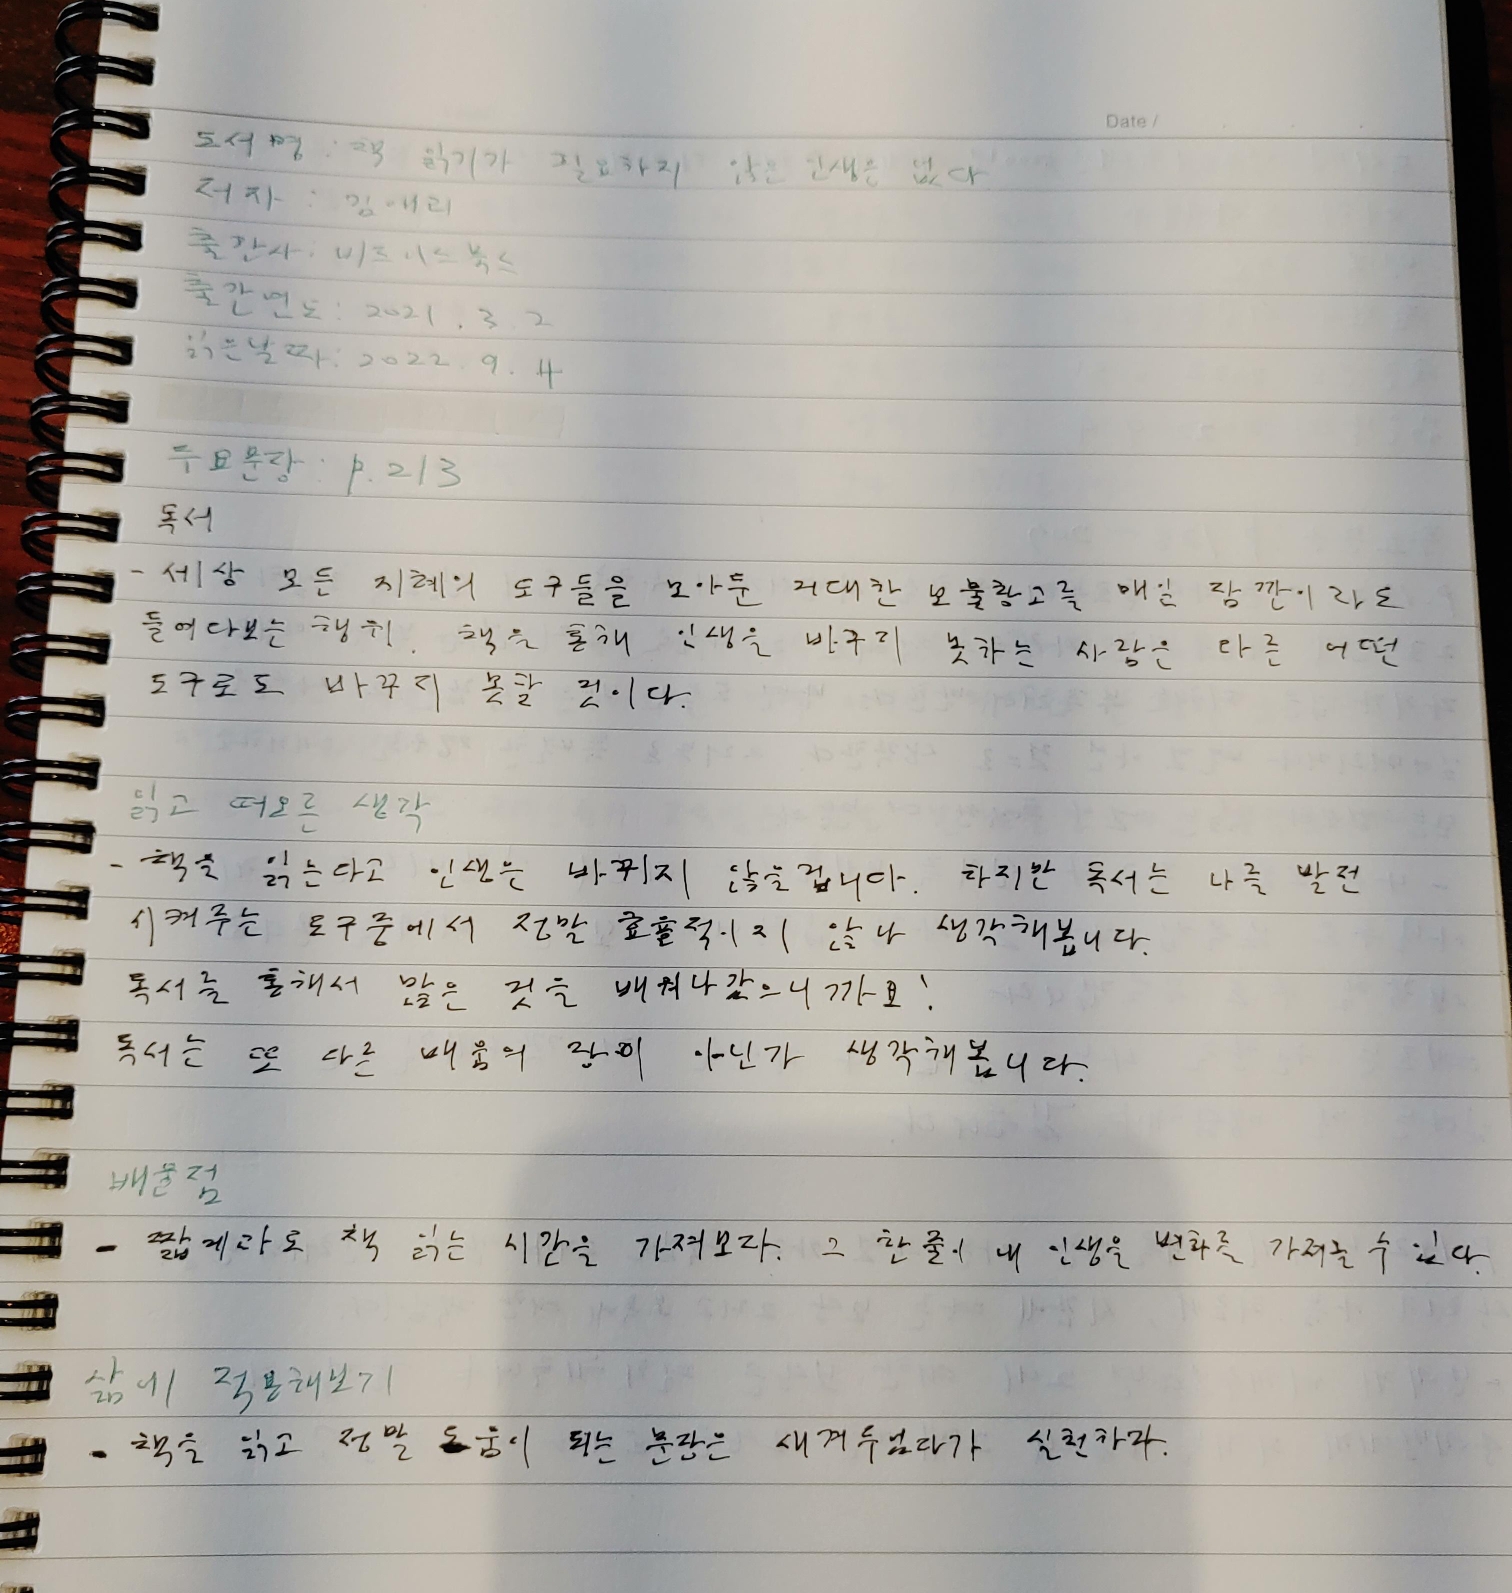 Date /
도서명 : 책 읽기가 필요하지 않은 인생은 없다
저자 : 김애리
출판사 : 비즈니스북스
출간연도 : 2021. 3. 2
읽은날짜 : 2022. 9. 4
주요문장 : p. 213
독서
- 세상 모든 지혜의 도구들을 모아둔 거대한 보물창고를 매일 잠깐이라도
들여다보는 행위. 책을 통해 인생을 바꾸지 못하는 사람은 다른 어떤
도구로도 바꾸지 못할 것이다.
읽고 떠오른 생각
- 책을 읽는다고 인생은 바뀌지 않을겁니다. 하지만 독서는 나를 발전
시켜주는 도구중에서 정말 효율적이지 않나 생각해봅니다.
독서를 통해서 많은 것을 배워나갔으니까요!
독서는 또 다른 배움의 장이 아닌가 생각해봅니다.
배울점
- 짧게라도 책 읽는 시간을 가져보자. 그 한 줄이 내 인생을 변화를 가져올 수 있다.
삶에 적용해보기
- 책을 읽고 정말 도움이 되는 문장은 새겨두었다가 실천하자.